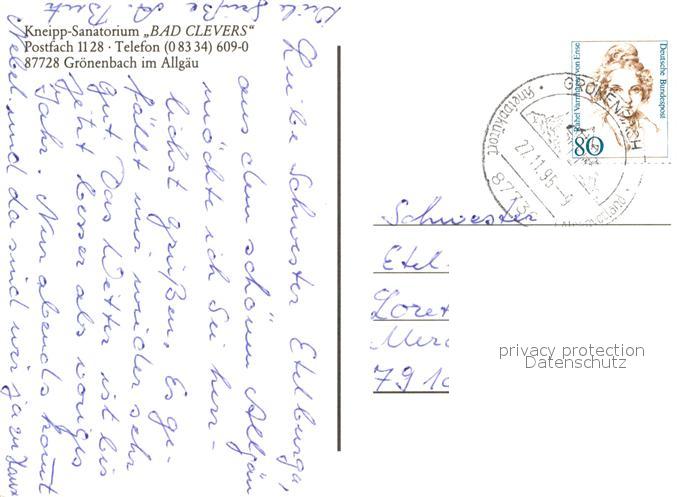 Kneipp-Sanatorium „BAD CLEVERS"
Postfach 11 28 · Telefon (0 83 34) 609-0
87728 Grönenbach im Allgäu
Liebe Schwester Etelburga,
aus dem schönen Allgäu
möchte ich Sie herz-
lichst grüßen. Es ge-
fällt mir wieder sehr
gut. Das Wetter ist bis
jetzt besser als voriges
Jahr. Nur abends kommt
Nebel und da sind wir ja zu Haus
Viele Grüße
Deutsche Bundespost
Rahel Varnhagen von Ense
80
GRÖNENBACH
Kneippkurort
27.11.95-9
Schwester
Etel
Loret
Merc
79 10
privacy protection
Datenschutz